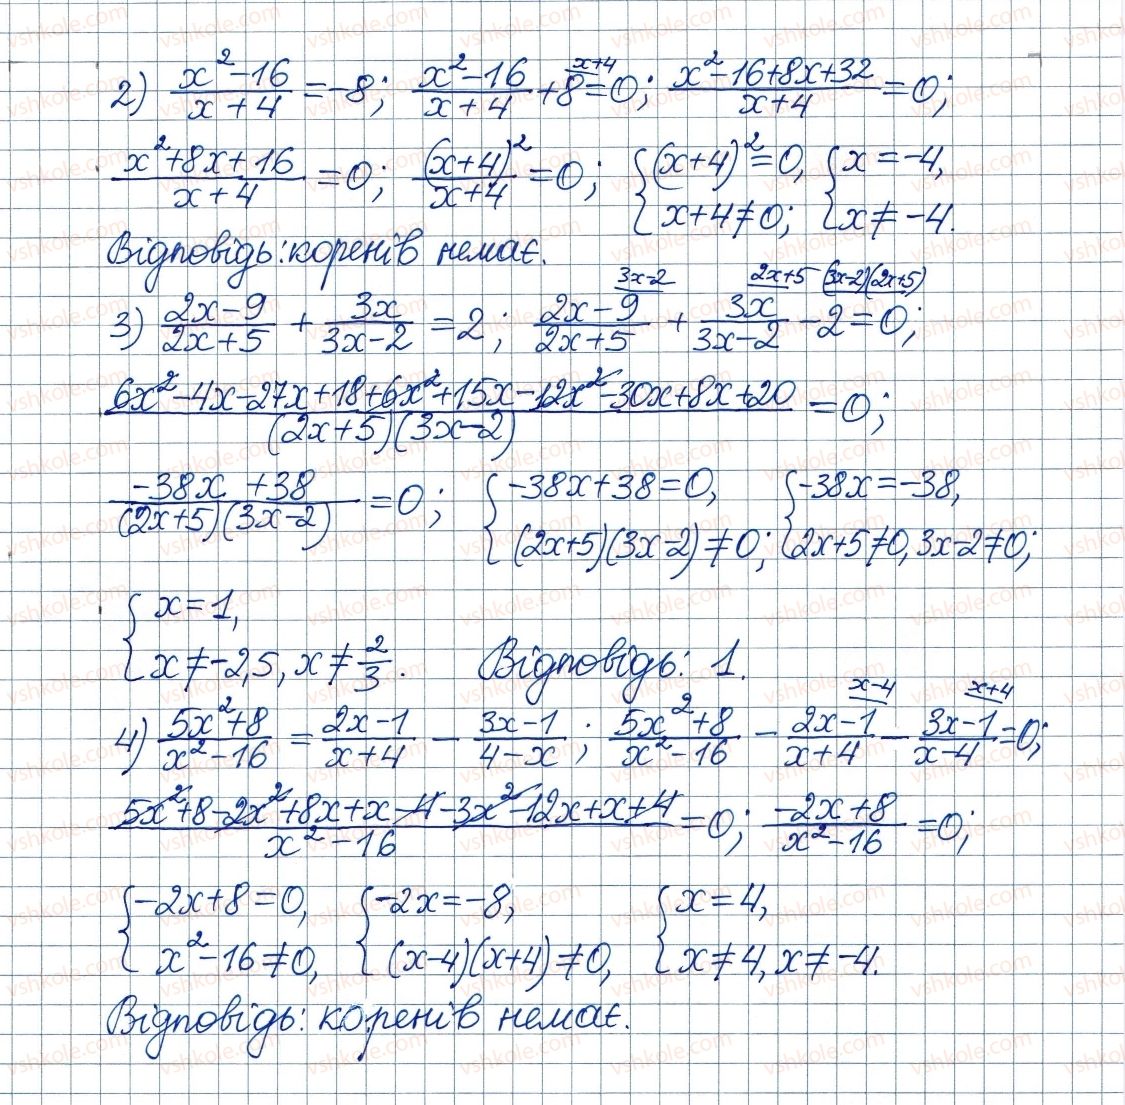 2) (x²-16)/(x+4) = -8; (x²-16)/(x+4) + 8^(x+4) = 0; (x²-16+8x+32)/(x+4) = 0;
(x²+8x+16)/(x+4) = 0; (x+4)²/(x+4) = 0; { (x+4)² = 0, x+4 ≠ 0; { x = -4, x ≠ -4.
Відповідь: коренів немає.
3) (2x-9)/(2x+5) + 3x/(3x-2) = 2; (2x-9)^(3x-2)/(2x+5) + 3x^(2x+5)/(3x-2) - 2^((3x-2)(2x+5)) = 0;
(6x²-4x-27x+18+6x²+15x-12x²-30x+8x+20)/((2x+5)(3x-2)) = 0;
(-38x +38)/((2x+5)(3x-2)) = 0; { -38x+38=0, (2x+5)(3x-2) ≠ 0; { -38x = -38, 2x+5≠0, 3x-2≠0;
{ x = 1, x ≠ -2,5, x ≠ 2/3. Відповідь: 1.
4) (5x²+8)/(x²-16) = (2x-1)/(x+4) - (3x-1)/(4-x); (5x²+8)/(x²-16) - (2x-1)^(x-4)/(x+4) - (3x-1)^(x+4)/(x-4) = 0;
(5x²+8-2x²+8x+x-4-3x²-12x+x+4)/(x²-16) = 0; (-2x+8)/(x²-16) = 0;
{ -2x+8=0, x²-16≠0, { -2x=-8, (x-4)(x+4)≠0, { x=4, x≠4, x≠-4.
Відповідь: коренів немає.